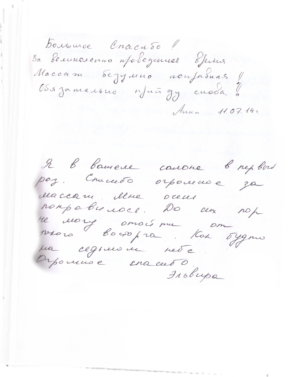 Большое спасибо!
За великолепно проведенное время
Массаж безумно понравился!!
Обязательно прийду снова!!
Анна 11.07.14г.
Я в вашем салоне в первый
раз. Спасибо огромное за
массаж мне очень
понравилося. До сих пор
не могу отойти от
твоего восторга. Как будто
на седьмом небе
Огромное спасибо
Эльвира